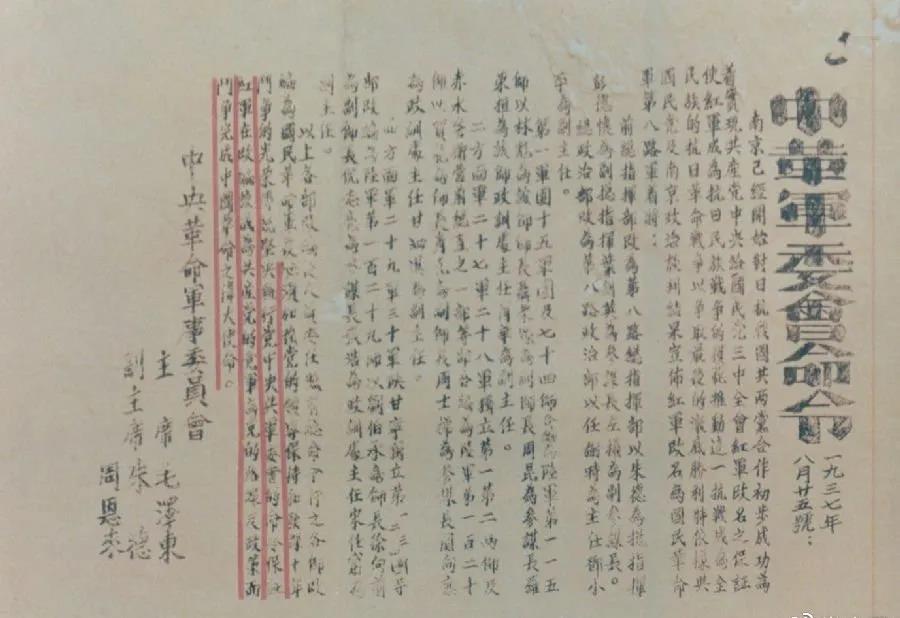 中華軍委會命令
一九三七年
八月廿五號：
南京已經開始對日抗戰國共兩黨合作初步成功為
着實現共產黨中央給國民黨三中全會紅軍改名之保証
使紅軍成為抗日民族戰爭的模範推動這一抗戰成為全
民族的抗日革命戰爭以爭取最後的澈底勝利特依據與
國民黨及南京政治談判結果宣佈紅軍改名為國民革命
軍第八路軍着將：
前總指揮部改為第八路總指揮部以朱德為總指揮
彭德懷為副總指揮葉劍英為參謀長左權為副參謀長。
總政治部改為第八路政治部以任弼時為主任鄧小
平為副主任。
第一軍團十五軍團及七十四師合編為陸軍第一一五
師以林彪為該師師長聶榮臻為副師長周昆為參謀長羅
榮桓為該師政訓處主任蕭華為副主任。
二方面軍二十七軍二十八軍獨立第一第二兩師及
赤水警衛營前總直之一部等部合編為陸軍第一百二十
師以賀龍為師長蕭克為副師長周士第為參謀長關向應
為政訓處主任甘泗淇為副主任。
四方面軍二十九軍三十軍陝甘寧獨立第一二三四等
部改編為陸軍第一百二十九師以劉伯承為師長徐向前
為副師長倪志亮為參謀長張浩為政訓處主任宋任窮為
副主任。
以上各部改編後人員委任照前總命令行之各部改
編為國民革命軍後必須加強黨的領導保持和發揮十年
鬥爭的光榮傳統堅決執行黨中央與軍委會的命令保證
紅軍在改編後成為共產黨的黨軍為黨的路線及政策而
鬥爭完成中國革命之偉大使命。
中央革命軍事委員會
主席毛澤東
副主席朱德
周恩來